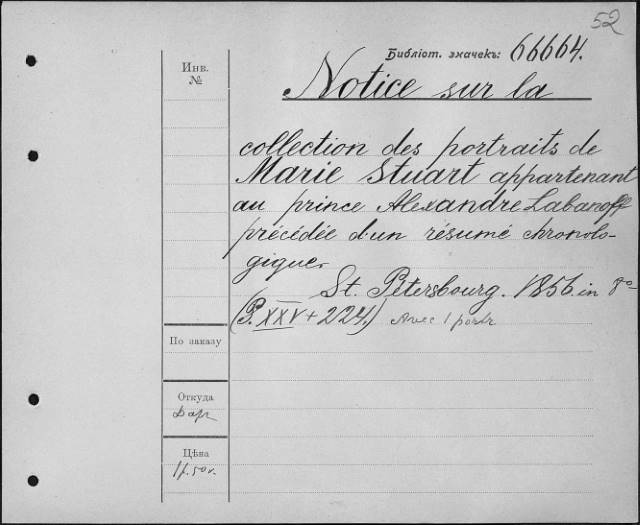 52
Библіот. значекъ: 66664.
Инв.
№
Notice sur la
collection des portraits de
Marie Stuart appartenant
au prince Alexandre Labanoff
précédée d'un résumé chronolo-
gique.
St. Pétersbourg. 1856. in 8°
(P. XXV + 224.) Avec 1 portr
По заказу
Откуда
Дар
Цѣна